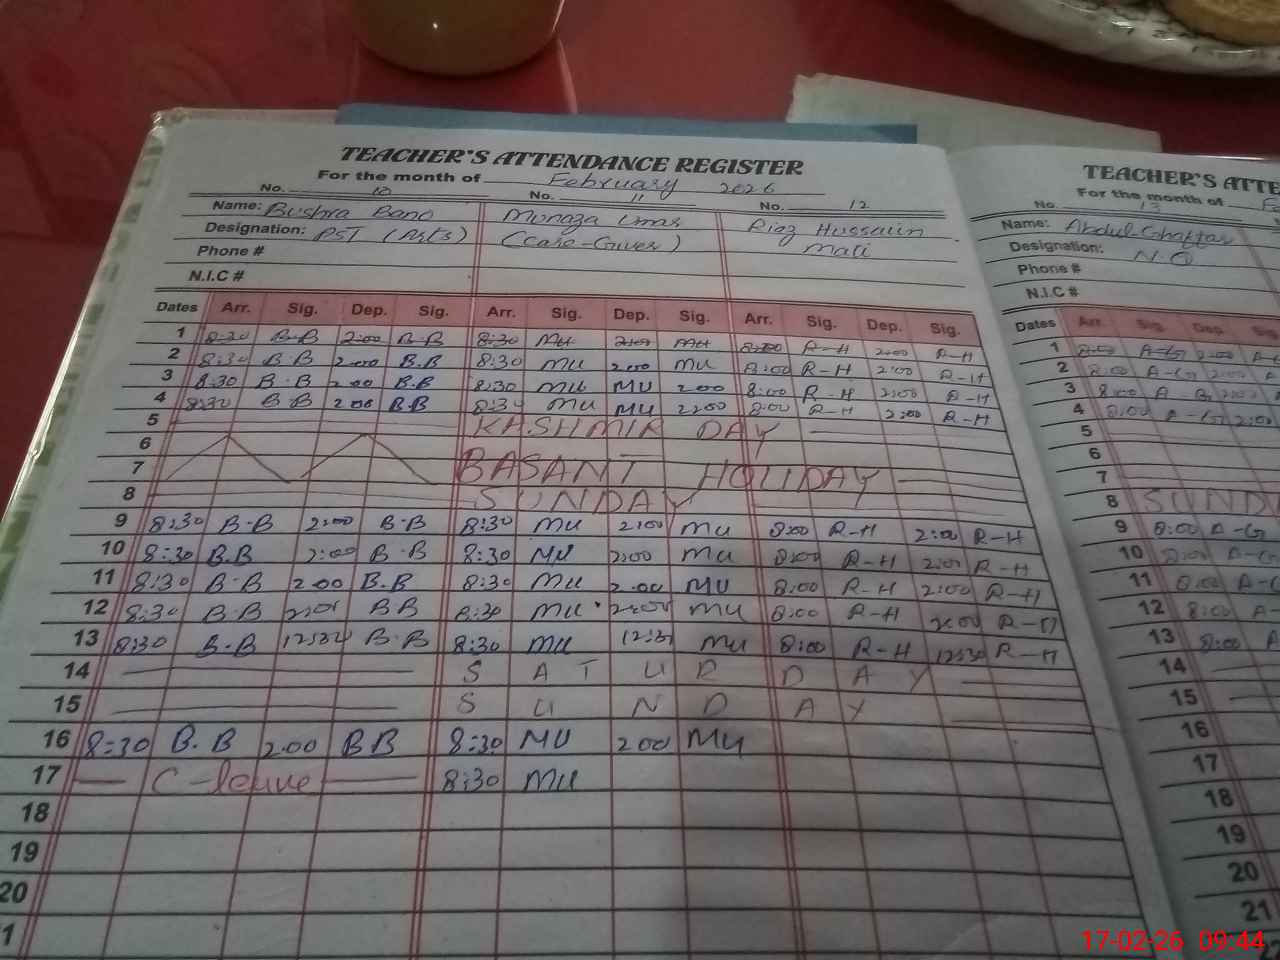 TEACHER'S ATTENDANCE REGISTER
For the month of February 2026
No. 10 No. 11 No. 12
Name: Bushra Bano Munaza Umar Riaz Hussain
Designation: PST (Arts) (care-Giver) Mali
Phone #
N.I.C #
Dates Arr. Sig. Dep. Sig. Arr. Sig. Dep. Sig. Arr. Sig. Dep. Sig.
1 8:30 B.B 2:00 B.B 8:30 MU 2:00 MU 8:00 R-H 2:00 R-H
2 8:30 B.B 2:00 B.B 8:30 MU 2:00 MU 8:00 R-H 2:00 R-H
3 8:30 B.B 2:00 B.B 8:30 MU MU 2:00 8:00 R-H 2:00 R-H
4 8:30 B.B 2:00 B.B 8:30 MU MU 2:00 8:00 R-H 2:00 R-H
5 KASHMIR DAY
6
7 BASANT HOLIDAY
8 SUNDAY
9 8:30 B-B 2:00 B-B 8:30 MU 2:00 MU 8:00 R-H 2:00 R-H
10 8:30 B.B 2:00 B.B 8:30 MU 2:00 MU 8:00 R-H 2:00 R-H
11 8:30 B-B 2:00 B.B 8:30 MU 2:00 MU 8:00 R-H 2:00 R-H
12 8:30 B.B 2:00 BB 8:30 MU 2:00 MU 8:00 R-H 2:00 R-H
13 8:30 B-B 12:30 B.B 8:30 MU 12:30 MU 8:00 R-H 12:30 R-H
14 SATURDAY
15 SUNDAY
16 8:30 B.B 2.00 BB 8:30 MU 2:00 MU
17 C-leave 8:30 MU
18
19
20
1
TEACHER'S ATTE
For the month of
No. 13
Name: Abdul Ghaffar
Designation: N.Q
Phone #
N.I.C #
Dates Arr. Sig. Dep.
1 8:00 A-G 2:00
2 8:00 A-G 2:00
3 8:00 A
4 8:00 A-G 2:00
5
6
7
8 SUND
9 8:00 A-G
10 8:00 A-G
11 8:00 A-
12 8:00 A-
13 8:00 A
14
15
16
17
18
19
20
21
17-02-26 09:44